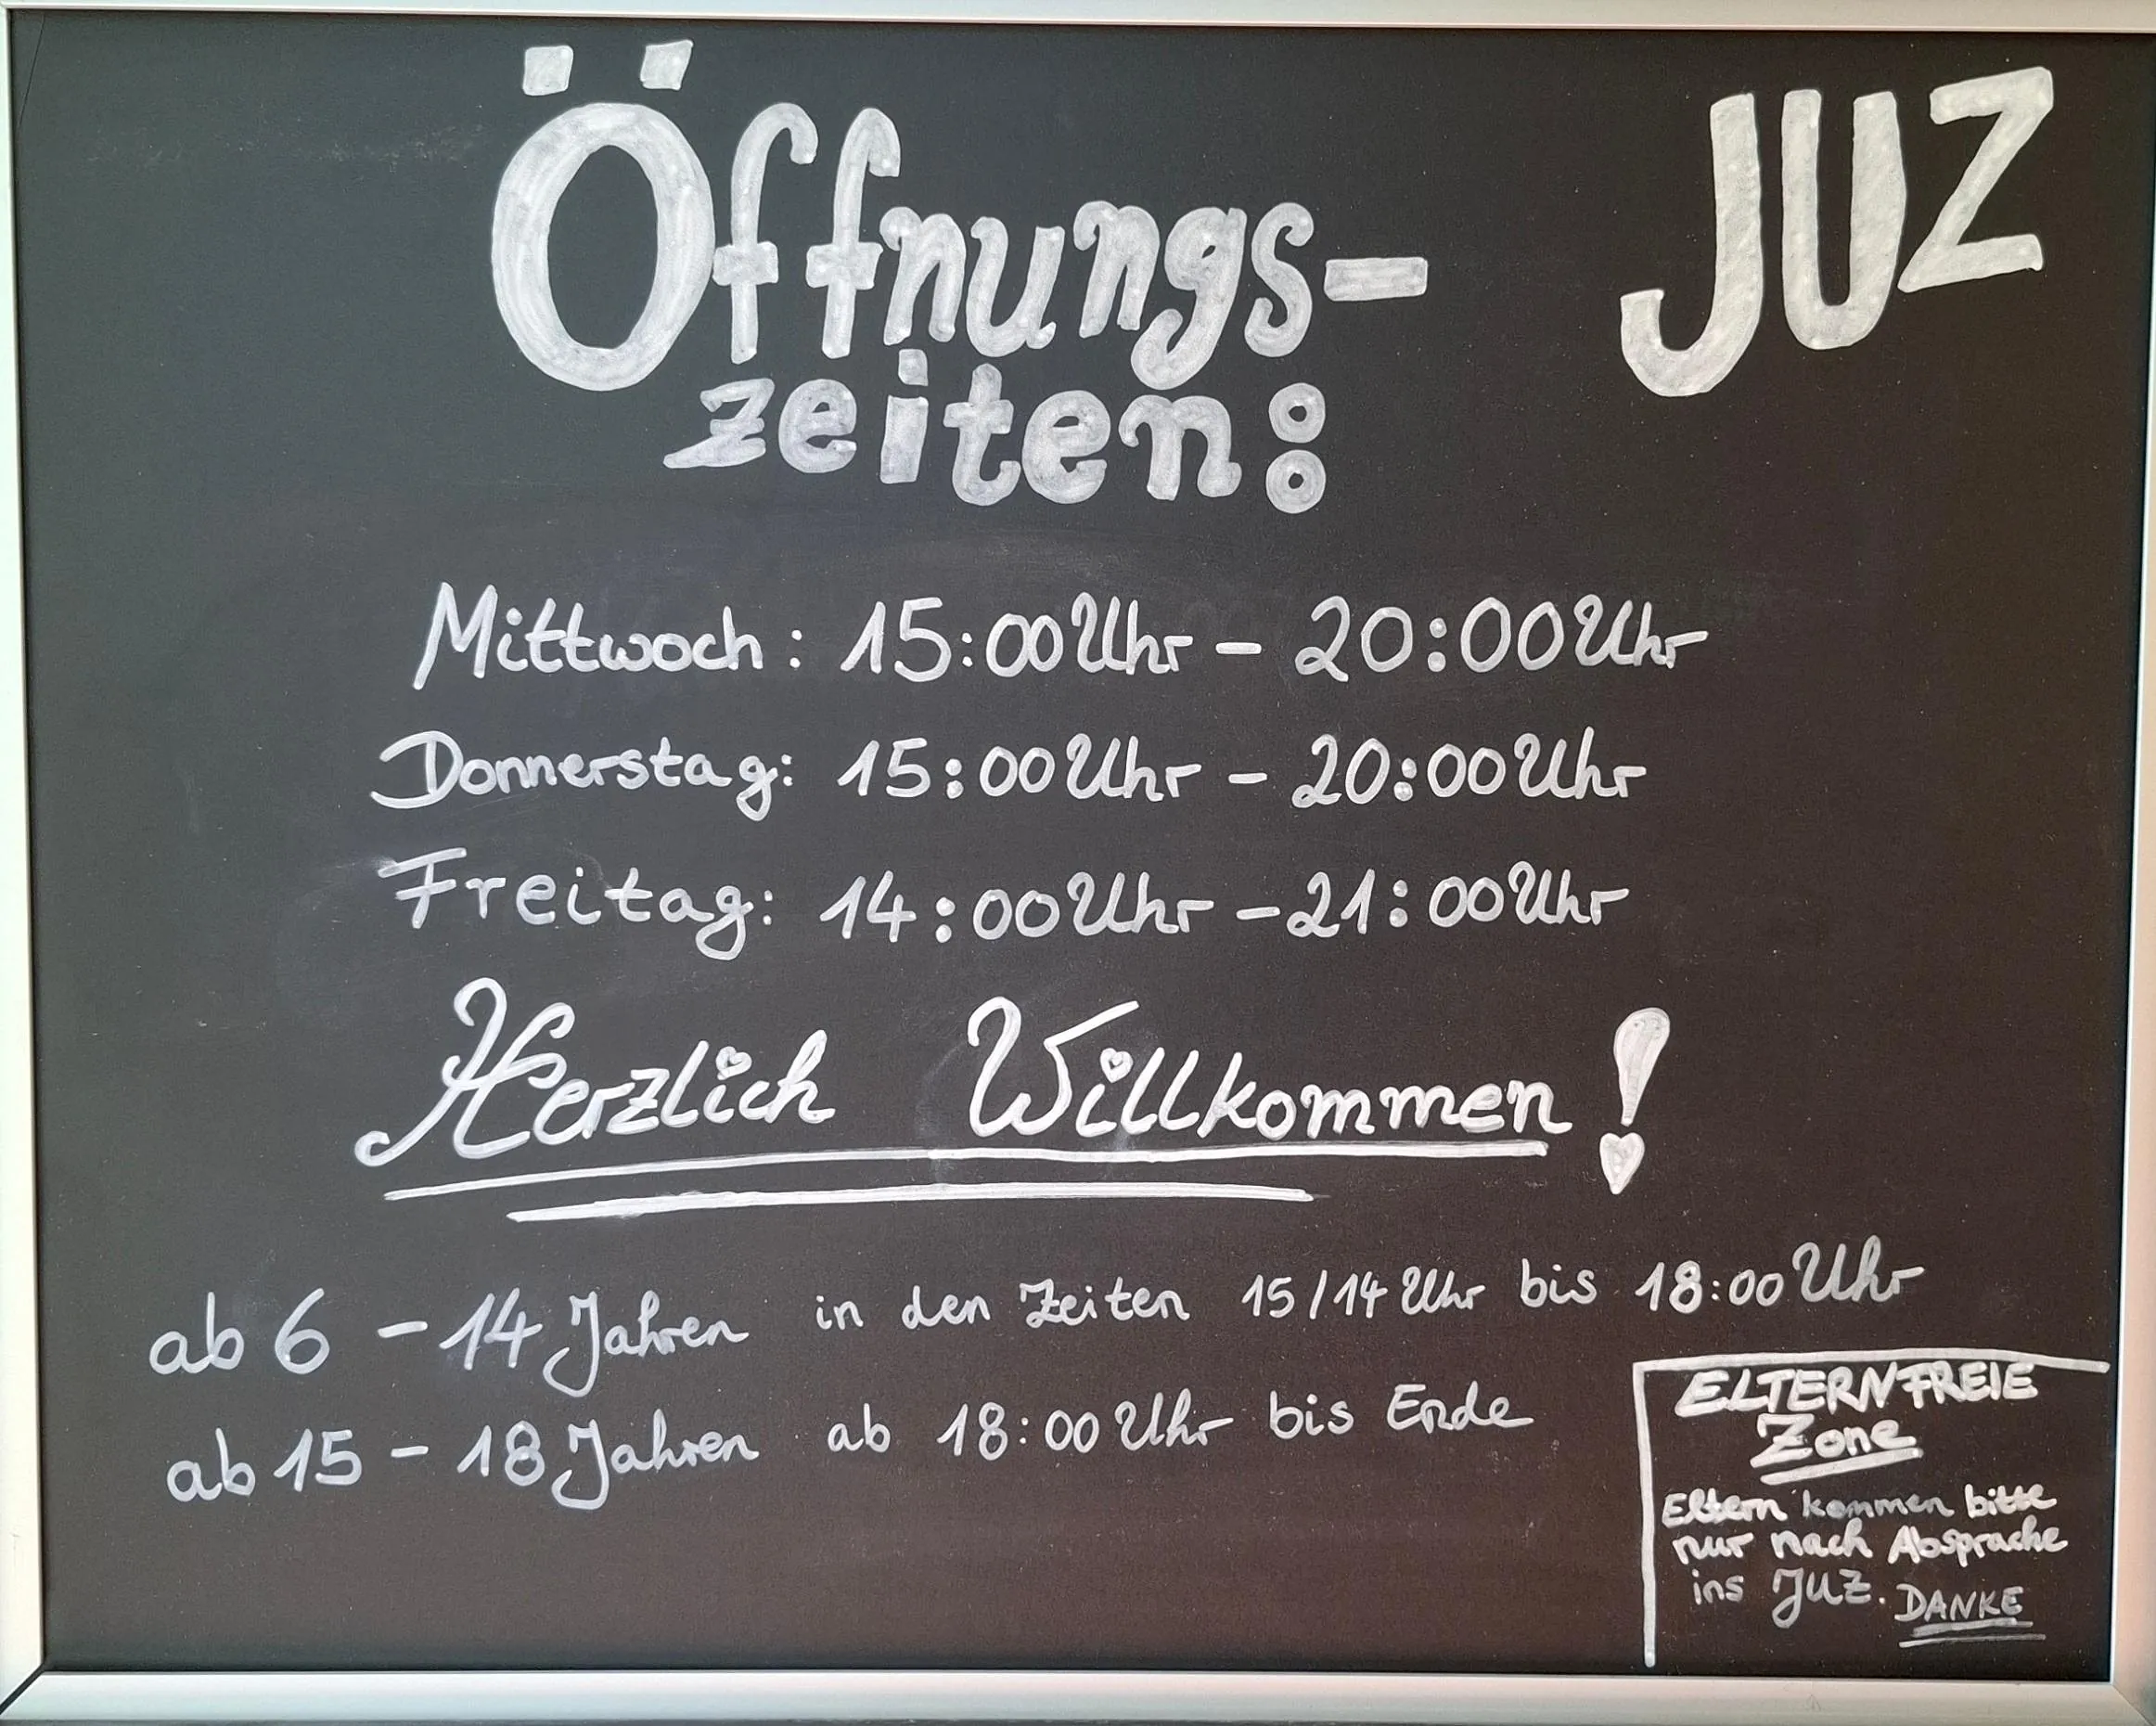 Öffnungs-
zeiten:
JUZ
Mittwoch: 15:00 Uhr - 20:00 Uhr
Donnerstag: 15:00 Uhr - 20:00 Uhr
Freitag: 14:00 Uhr - 21:00 Uhr
Herzlich Willkommen!
ab 6 - 14 Jahren in den Zeiten 15/14 Uhr bis 18:00 Uhr
ab 15 - 18 Jahren ab 18:00 Uhr bis Ende
ELTERNFREIE
Zone
Eltern kommen bitte
nur nach Absprache
ins JUZ. DANKE